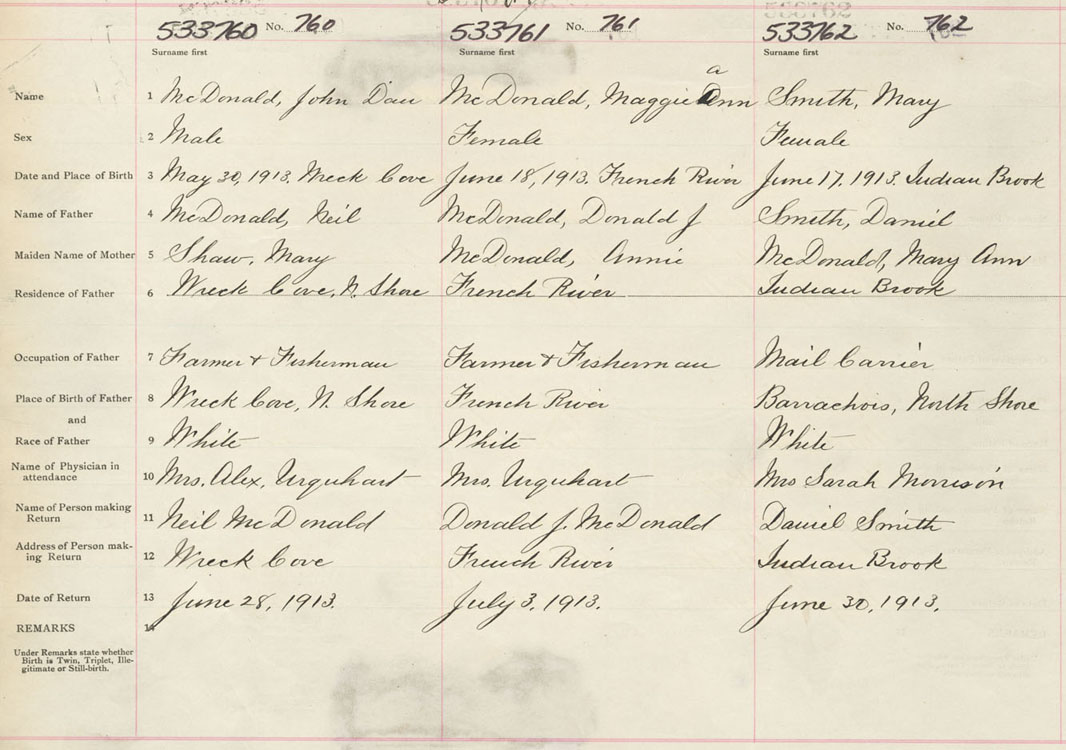 533760 No. 760 533761 No. 761 533762 No. 762
Surname first Surname first Surname first
a
Name 1 McDonald, John Dan McDonald, Maggie Ann Smith, Mary
Sex 2 Male Female Female
Date and Place of Birth 3 May 30, 1913. Wreck Cove June 18, 1913. French River June 17, 1913. Indian Brook
Name of Father 4 McDonald, Neil McDonald, Donald J Smith, Daniel
Maiden Name of Mother 5 Shaw, Mary McDonald, Annie McDonald, Mary Ann
Residence of Father 6 Wreck Cove, N. Shore French River Indian Brook
Occupation of Father 7 Farmer + Fisherman Farmer + Fisherman Mail Carrier
Place of Birth of Father 8 Wreck Cove, N. Shore French River Barrachois, North Shore
and
Race of Father 9 White White White
Name of Physician in
attendance 10 Mrs. Alex. Urquhart Mrs. Urquhart Mrs Sarah Morrison
Name of Person making
Return 11 Neil McDonald Donald J. McDonald Daniel Smith
Address of Person mak-
ing Return 12 Wreck Cove French River Indian Brook
Date of Return 13 June 28, 1913. July 3, 1913. June 30, 1913.
REMARKS 14
Under Remarks state whether
Birth is Twin, Triplet, Ille-
gitimate or Still-birth.